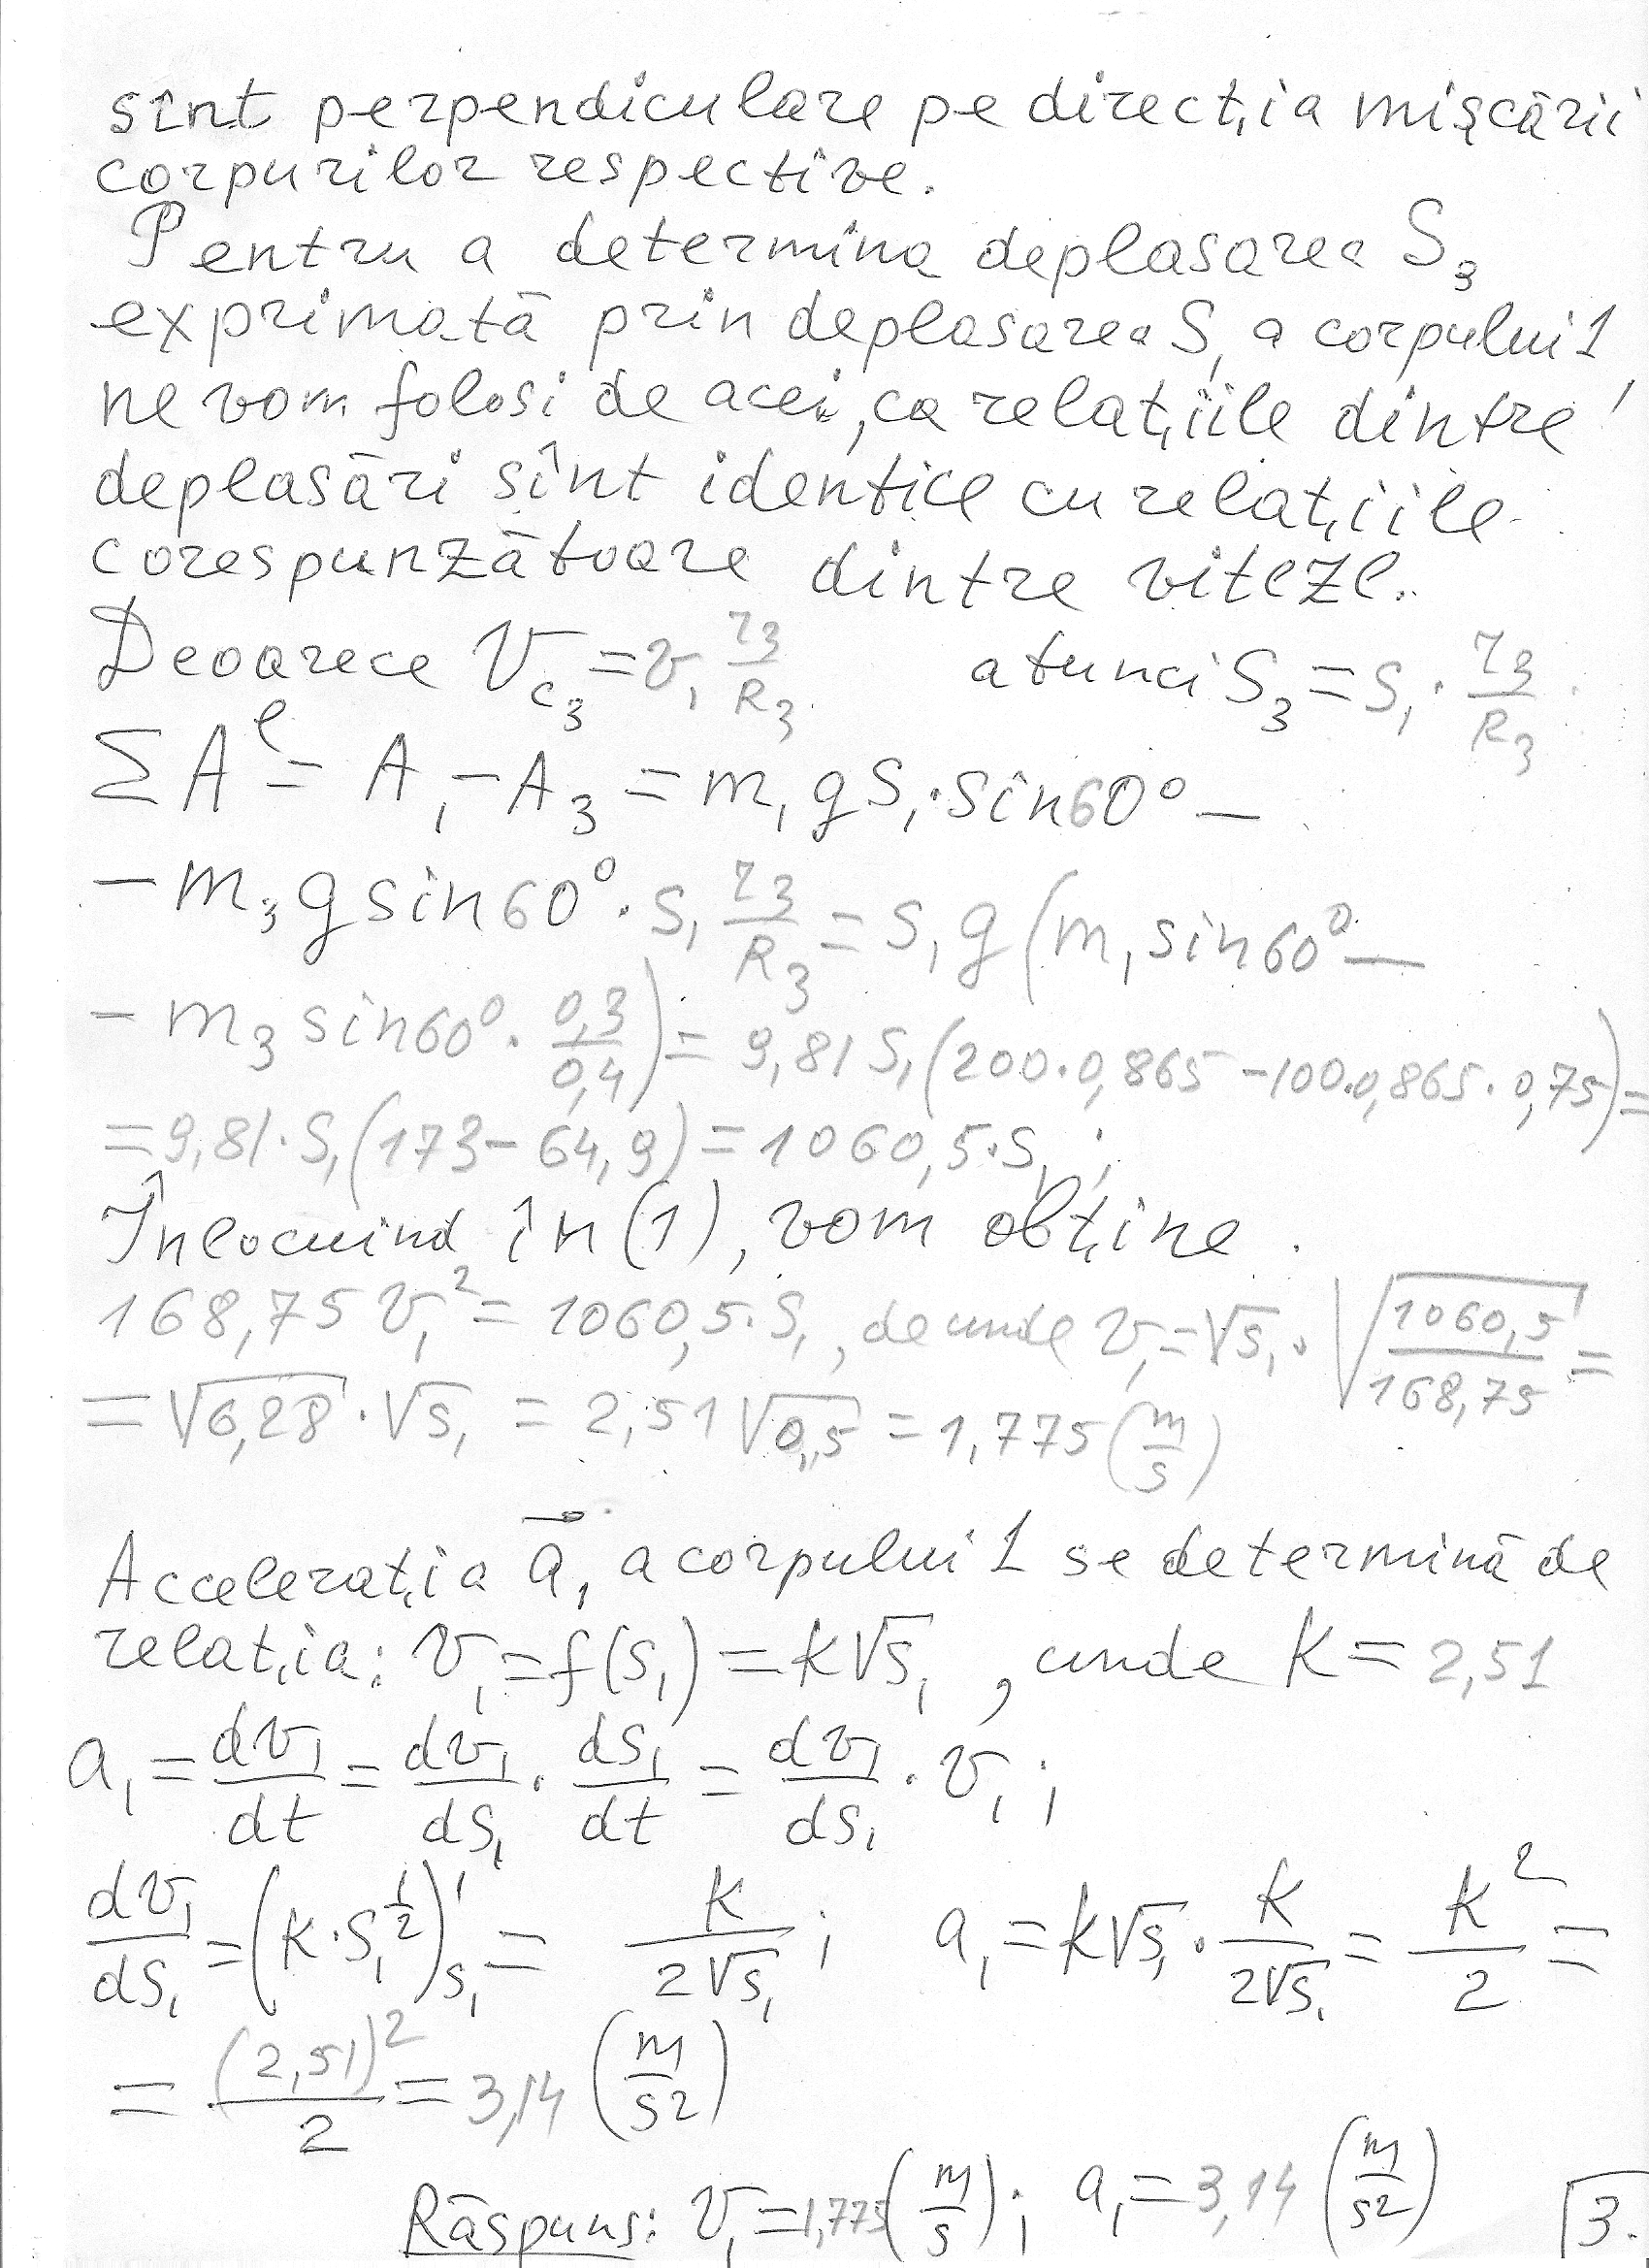 sînt perpendiculare pe direcția mișcării
corpurilor respective.
Pentru a determina deplasarea S₃
exprimată prin deplasarea S₁ a corpului 1,
ne vom folosi de acei, ca relațiile dintre
deplasări sînt identice cu relațiile
corespunzătoare dintre viteze.
Deoarece V_c₃ = v₁ r₃/R₃ atunci S₃ = S₁ · r₃/R₃
ΣAᵉ = A₁ - A₃ = m₁ g S₁ · sin 60° -
- m₃ g sin 60° · S₁ r₃/R₃ = S₁ g (m₁ sin 60° -
- m₃ sin 60° · 0,3/0,4) = 9,81 S₁ (200·0,865 - 100·0,865·0,75) =
= 9,81 · S₁ (173 - 64,9) = 1060,5 · S₁ ;
Înlocuind în (1), vom obține.
168,75 v₁² = 1060,5 · S₁, de unde v₁ = √S₁ · √(1060,5/168,75) =
= √6,28 · √S₁ = 2,51 √0,5 = 1,775 (m/s)
Accelerația a⃗₁ a corpului 1 se determină de
relația: v₁ = f(s₁) = k√s₁, unde k = 2,51
a₁ = dv₁/dt = dv₁/ds₁ · ds₁/dt = dv₁/ds₁ · v₁ ;
dv₁/ds₁ = (k · s₁^(1/2))'_s₁ = k/(2√s₁) ; a₁ = k√s₁ · k/(2√s₁) = k²/2 =
= (2,51)²/2 = 3,14 (m/s²)
Răspuns: v₁ = 1,775 (m/s) ; a₁ = 3,14 (m/s²) 3.